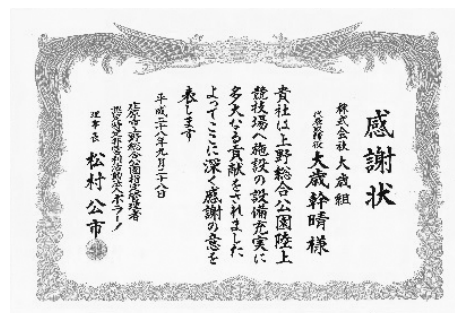 感謝状
株式会社 大歳組
代表取締役 大歳幹晴 様
貴社は上野総合公園陸上
競技場へ施設の設備充実に
多大なる貢献をされました
よってここに深く感謝の意を
表します
平成二十八年九月二十八日
庄原市上野総合公園指定管理者
特定非営利活動法人ポラーノ
理事長 松村公市